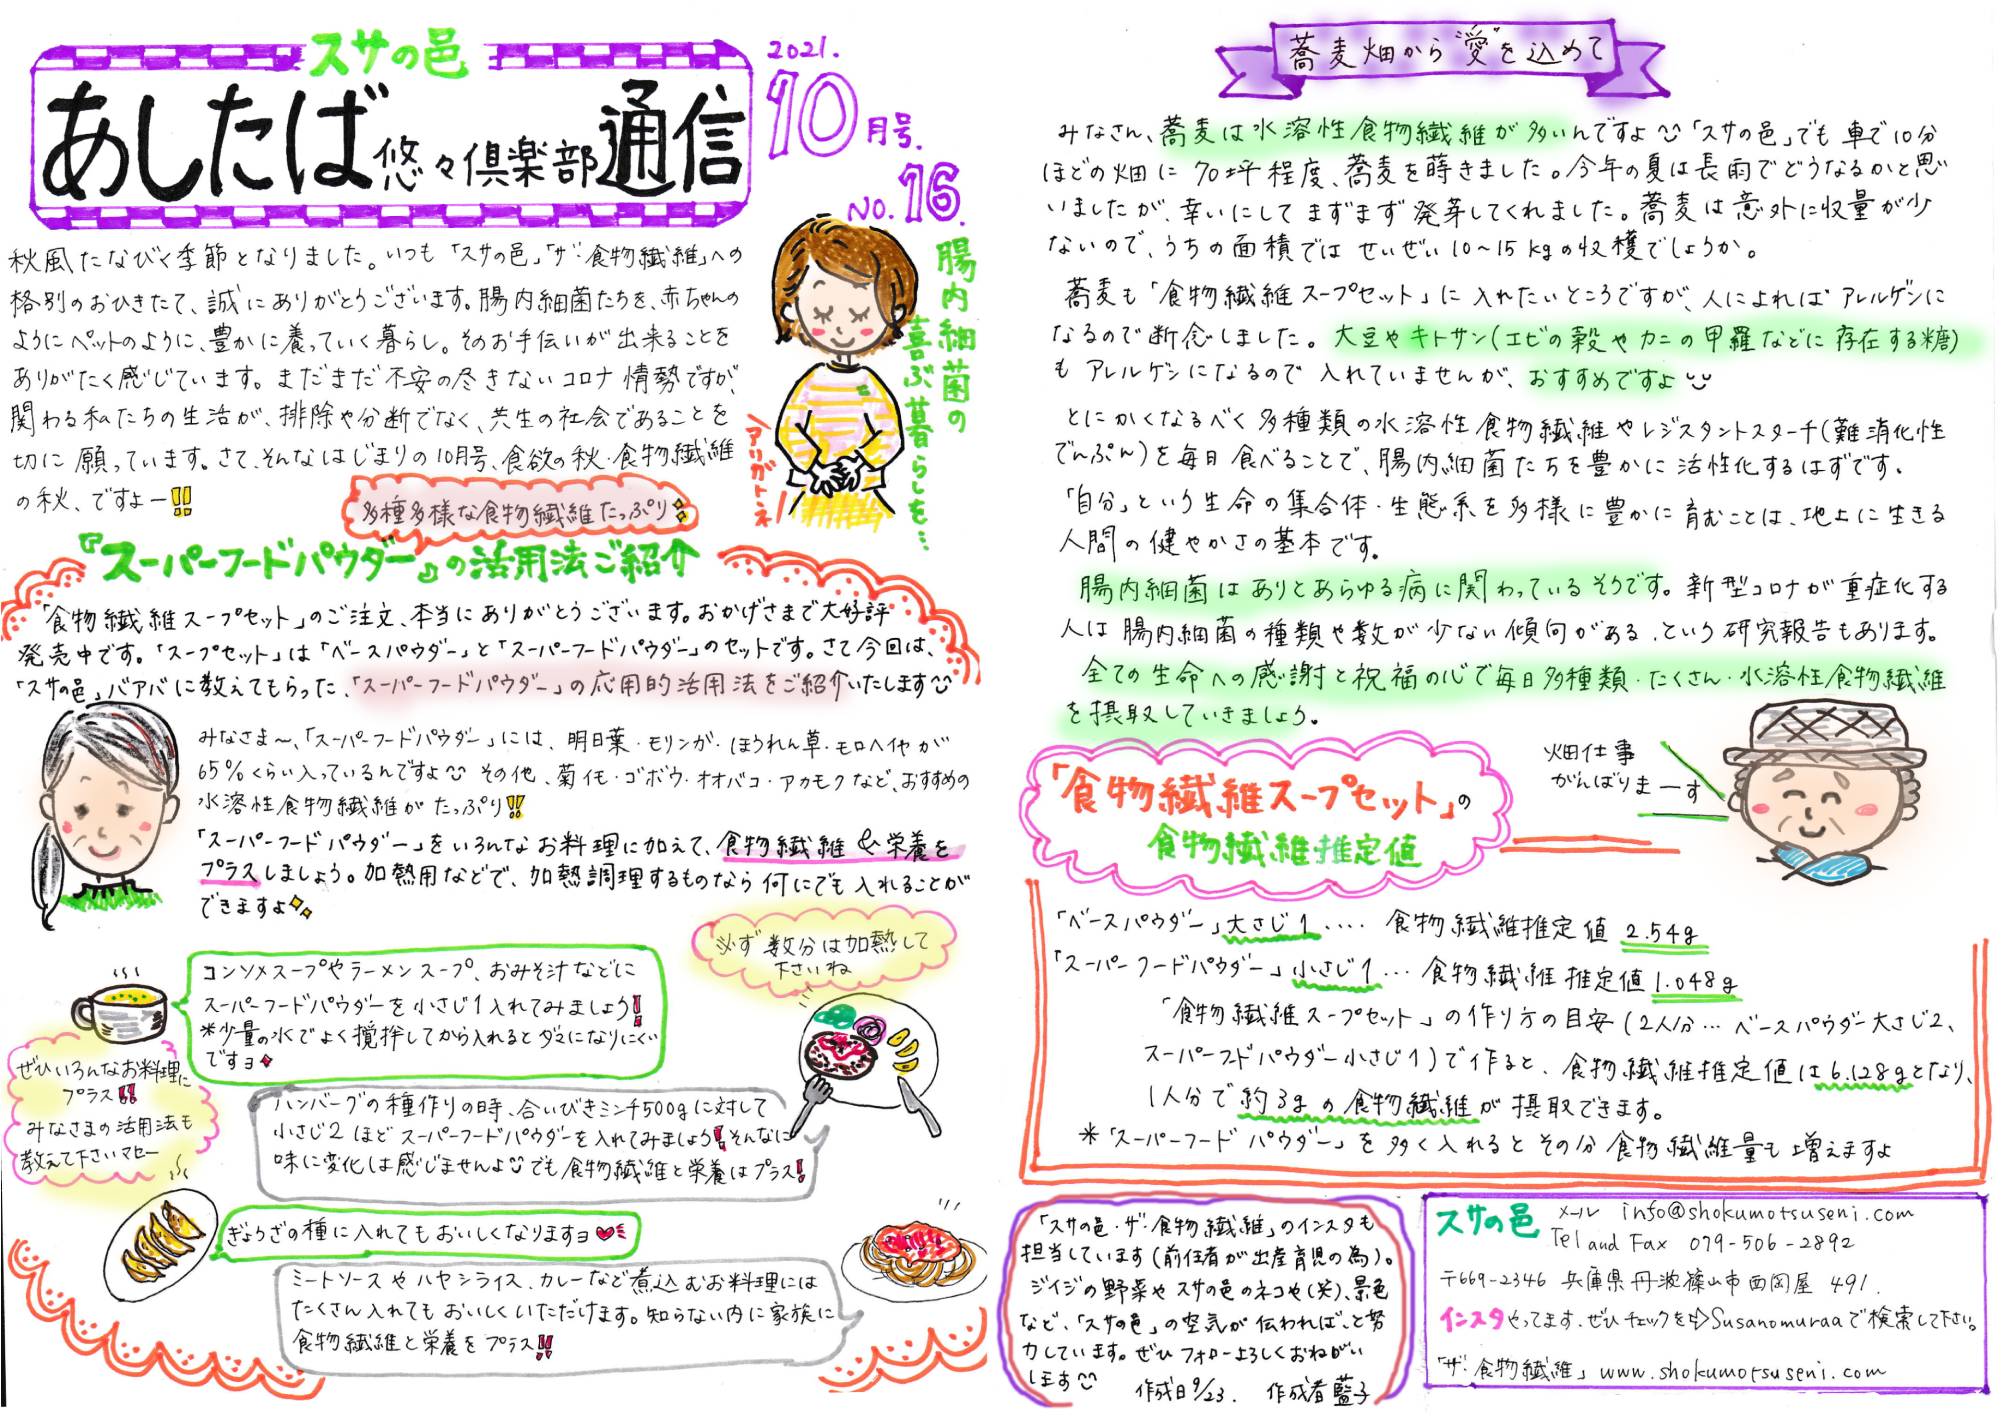 スサの邑
あしたば悠々倶楽部通信
2021.
10月号.
NO.16.
腸内細菌の
喜ぶ暮らしを…
アリガトネ
秋風たなびく季節となりました。いつも「スサの邑」「ザ・食物繊維」への
格別のおひきたて、誠にありがとうございます。腸内細菌たちを、赤ちゃんの
ようにペットのように、豊かに養っていく暮らし。そのお手伝いが出来ることを
ありがたく感じています。まだまだ不安の尽きないコロナ情勢ですが、
関わる私たちの生活が、排除や分断でなく、共生の社会であることを
切に願っています。さて、そんなはじまりの10月号、食欲の秋・食物繊維
の秋、ですよー!!
多種多様な食物繊維たっぷり
『スーパーフードパウダー』の活用法ご紹介
「食物繊維スープセット」のご注文、本当にありがとうございます。おかげさまで大好評
発売中です。「スープセット」は「ベースパウダー」と「スーパーフードパウダー」のセットです。さて今回は、
「スサの邑」バアバに教えてもらった、「スーパーフードパウダー」の応用的活用法をご紹介いたします
みなさま〜、「スーパーフードパウダー」には、明日葉・モリンガ・ほうれん草・モロヘイヤが
65%くらい入っているんですよ その他、菊イモ・ゴボウ・オオバコ・アカモクなど、おすすめの
水溶性食物繊維がたっぷり!!
「スーパーフードパウダー」をいろんなお料理に加えて、食物繊維&栄養を
プラスしましょう。加熱用などで、加熱調理するものなら何にでも入れることが
できますよ
必ず数分は加熱して
下さいね
コンソメスープやラーメンスープ、おみそ汁などに
スーパーフードパウダーを小さじ1入れてみましょう!
*少量の水でよく撹拌してから入れるとダマになりにくい
ですヨ
ぜひいろんなお料理に
プラス!!
みなさまの活用法も
教えて下さいマセー
ハンバーグの種作りの時、合いびきミンチ500gに対して
小さじ2ほどスーパーフードパウダーを入れてみましょう!そんなに
味に変化は感じませんよ でも食物繊維と栄養はプラス!
ぎょうざの種に入れてもおいしくなりますヨ
ミートソースやハヤシライス、カレーなど煮込むお料理には
たくさん入れてもおいしくいただけます。知らない内に家族に
食物繊維と栄養をプラス!!
蕎麦畑から"愛"を込めて
みなさん、蕎麦は水溶性食物繊維が多いんですよ 「スサの邑」でも車で10分
ほどの畑に70坪程度、蕎麦を蒔きました。今年の夏は長雨でどうなるかと思
いましたが、幸いにしてまずまず発芽してくれました。蕎麦は意外に収量が少
ないので、うちの面積ではせいぜい10〜15kgの収穫でしょうか。
蕎麦も「食物繊維スープセット」に入れたいところですが、人によればアレルゲンに
なるので断念しました。大豆やキトサン(エビの殻やカニの甲羅などに存在する糖)
もアレルゲンになるので入れていませんが、おすすめですよ
とにかくなるべく多種類の水溶性食物繊維やレジスタントスターチ(難消化性
でんぷん)を毎日食べることで、腸内細菌たちを豊かに活性化するはずです。
「自分」という生命の集合体・生態系を多様に豊かに育むことは、地上に生きる
人間の健やかさの基本です。
腸内細菌はありとあらゆる病に関わっているそうです。新型コロナが重症化する
人は腸内細菌の種類や数が少ない傾向がある、という研究報告もあります。
全ての生命への感謝と祝福の心で毎日多種類・たくさん・水溶性食物繊維
を摂取していきましょう。
畑仕事
がんばりまーす
「食物繊維スープセット」の
食物繊維推定値
「ベースパウダー」大さじ1‥‥ 食物繊維推定値 2.54g
「スーパーフードパウダー」小さじ1… 食物繊維推定値 1.048g
「食物繊維スープセット」の作り方の目安(2人分…ベースパウダー大さじ2、
スーパーフードパウダー小さじ1)で作ると、食物繊維推定値は6.128gとなり、
1人分で約3gの食物繊維が摂取できます。
*「スーパーフードパウダー」を多く入れるとその分食物繊維量も増えますよ
「スサの邑・ザ・食物繊維」のインスタも
担当しています(前任者が出産育児の為)。
ジイジの野菜やスサの邑のネコや(笑)、景色
など、「スサの邑」の空気が伝われば、と努
力しています。ぜひフォローよろしくおねがい
します
作成日9/23. 作成者 藍子
スサの邑 メール info@shokumotsuseni.com
Tel and Fax 079-506-2892
〒669-2346 兵庫県丹波篠山市西岡屋 491.
インスタやってます、ぜひチェックを⇨Susanomuraaで検索して下さい。
「ザ・食物繊維」 www.shokumotsuseni.com